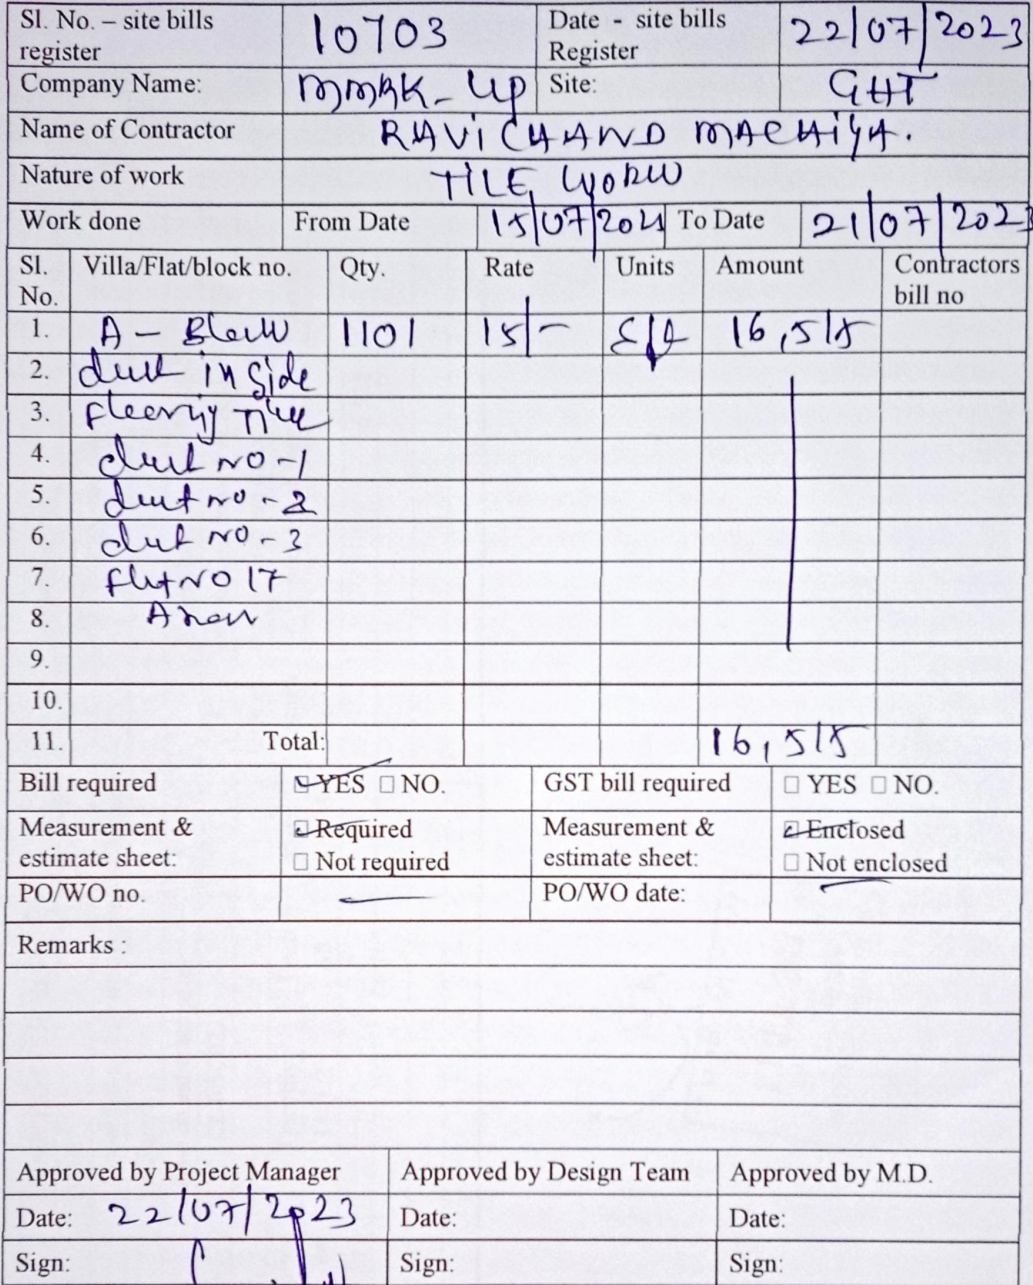 Sl. No. – site bills register 10703 Date - site bills Register 22/07/2023
Company Name: MMRK-UP Site: GHT
Name of Contractor RAVICHAND MACHIYA.
Nature of work TILE WORK
Work done From Date 15/07/2021 To Date 21/07/2023
Sl. No. Villa/Flat/block no. Qty. Rate Units Amount Contractors bill no
1. A - Block 1101 15/- Sft 16,515
2. duct in side
3. Tile
4. duct NO-1
5. duct NO-2
6. duct NO-3
7. flat NO 17
8. Area
9.
10.
11. Total: 16,515
Bill required YES NO. GST bill required YES NO.
Measurement & estimate sheet: Required Not required Measurement & estimate sheet: Enclosed Not enclosed
PO/WO no. PO/WO date:
Remarks :
Approved by Project Manager Approved by Design Team Approved by M.D.
Date: 22/07/2023 Date: Date:
Sign: Sign: Sign: